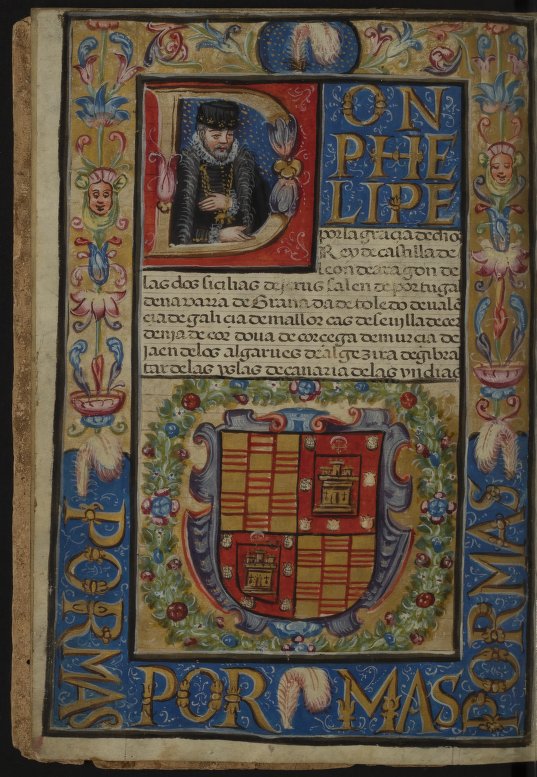 DON
PHE
LIPE
por la gracia de dio
Rey de castilla de
leon de aragon de
las dos sicilias de jerusalen de portugal
de navarra de Granada de toledo de valē
cia de galicia de mallorcas de sevilla de cer
deña de cordova de corcega de murcia de
jaen de los algarues de algezira de gibral
tar de las yslas de canaria de las yndias
POR MAS
POR MAS
POR MAS